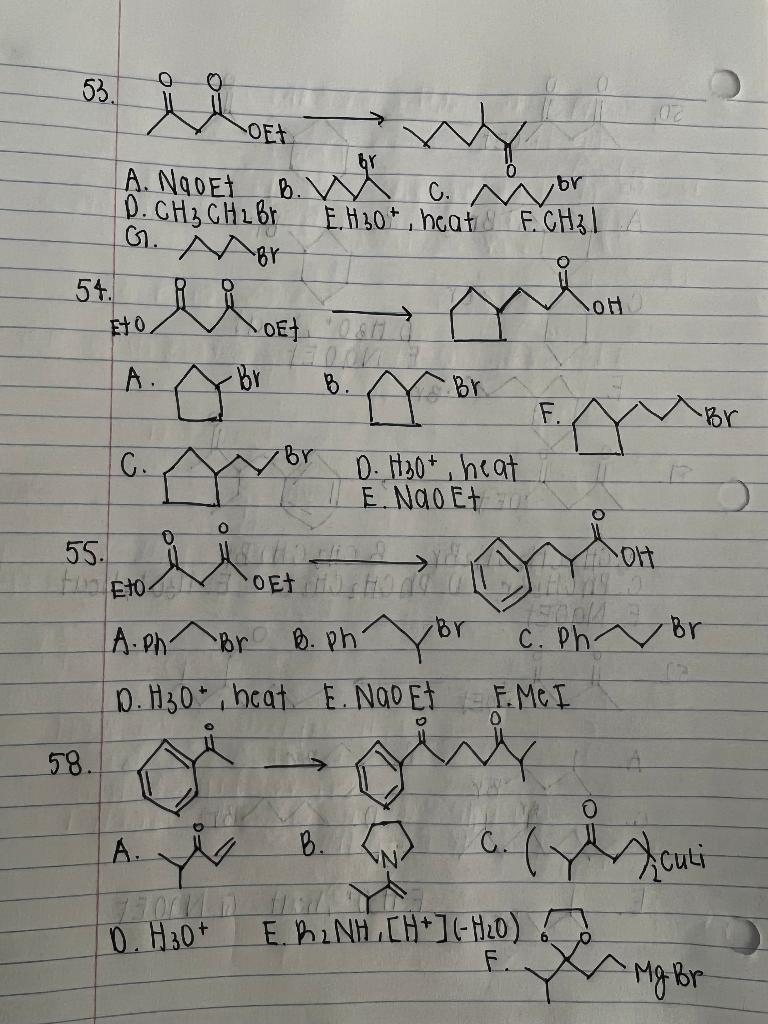 53.
O O
OEt
O
A. NaOEt B. Br C. Br
D. CH3CH2Br E. H3O+, heat F. CH3I
G. Br
54.
O O O
EtO OEt OH
A. Br B. Br
F. Br
C. Br D. H3O+, heat
E. NaOEt
55.
O O O
EtO OEt OH
A. Ph Br B. Ph Br C. Ph Br
D. H3O+, heat E. NaOEt F. MeI
58.
O O O
A. O B. N C. ( O )2CuLi
D. H3O+ E. R2NH, [H+](-H2O)
O O
F. MgBr